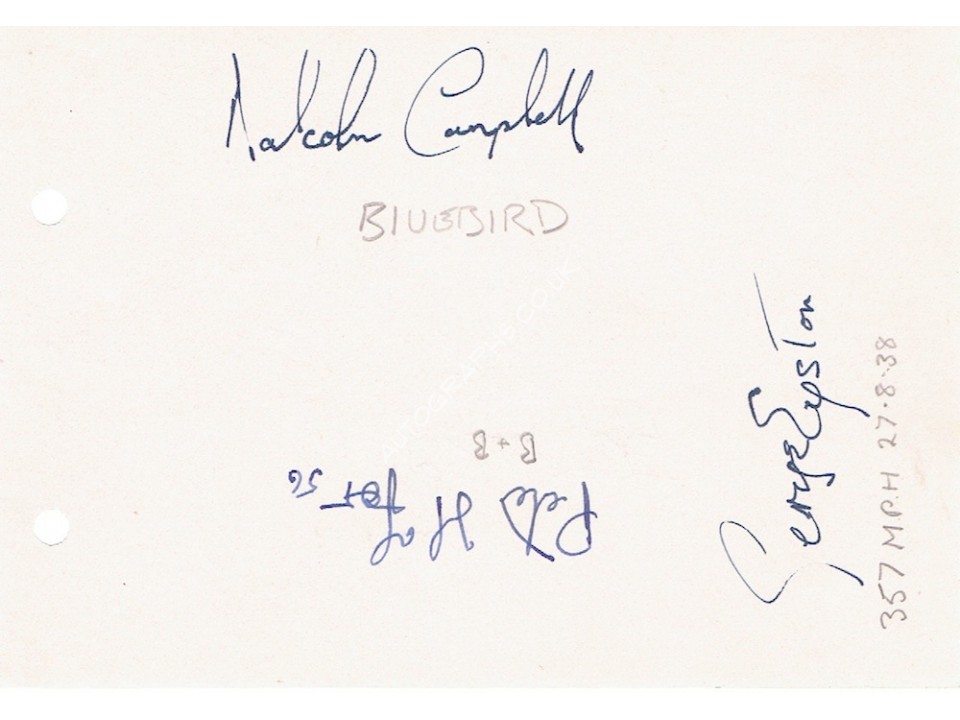 Malcolm Campbell
BIUEBIRD
George Eyston
357 M.P.H 27·8·38
B+B
Peter
56